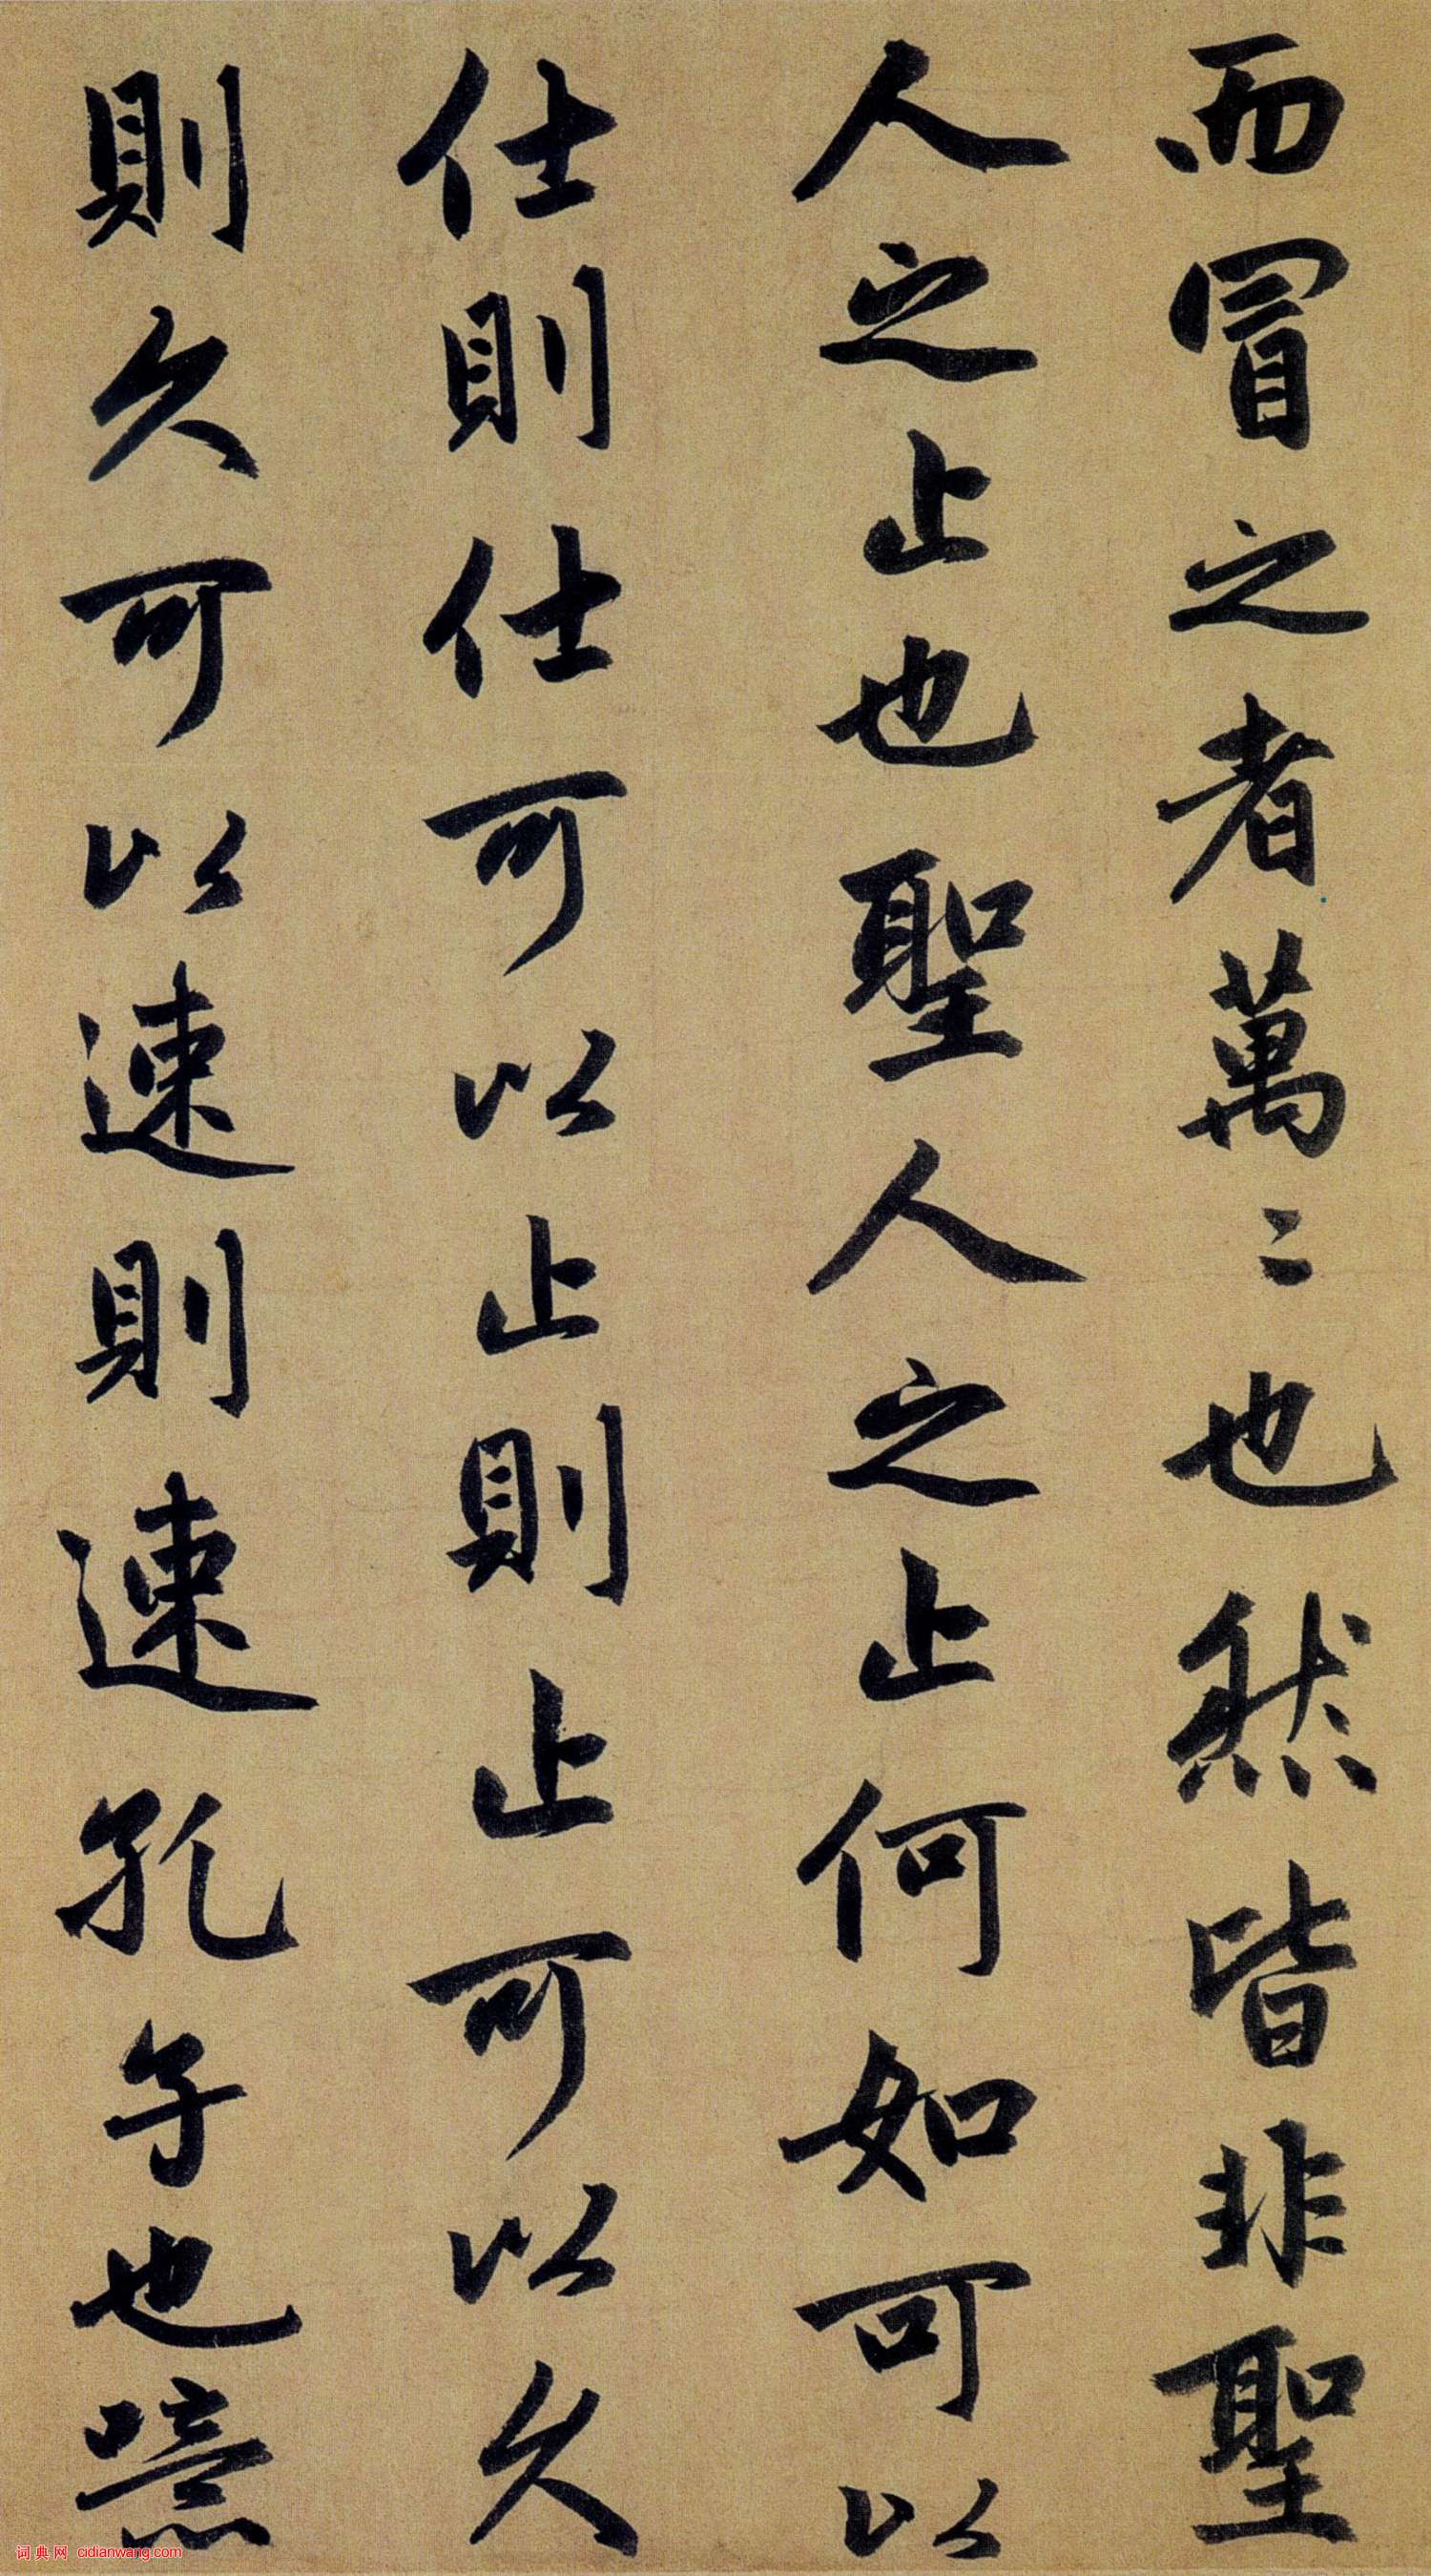 而冒之者萬〻也然皆非聖
人之止也聖人之止何如可以
仕則仕可以止則止可以久
則久可以速則速孔子也噫
词典网 cidianwang.com